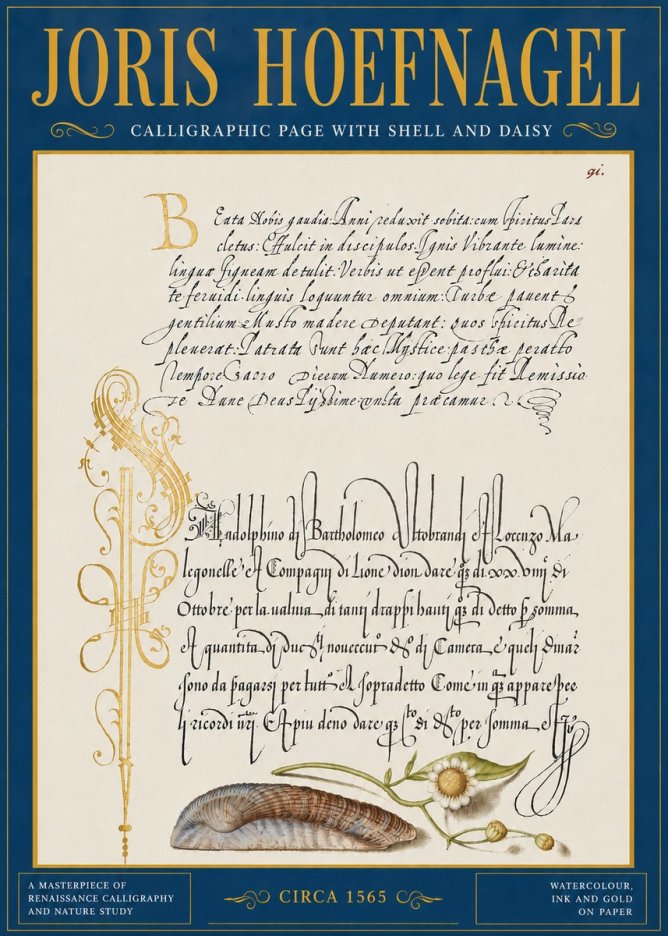 JORIS HOEFNAGEL
CALLIGRAPHIC PAGE WITH SHELL AND DAISY
91.
Beata Nobis gaudia: Anni reduxit sobita: cum Spiritus Para
cletus: Effulcit in discipulos. Ignis Vibrante lumine:
linguæ figneam detulit. Verbis ut essent proflui: Et charita
te feruidi. linguis loquuntur omnium: Turbæ pauent &
gentilium Musto madere deputant: quos Spiritus Re
pleuerat: Patrata Sunt hæc Mystice: pascħæ peracto
tempore Sacro Numero: quo lege fit Remissio
Nunc Deus precamur
di Bartholomeo Et Lorenzo Ma
legonelle Et Compagni di Lione dion dare di xx viiij di
Ottobre per la valuta di tanti drappi hauti di detto somma
Et quantita di Duc di Camera, e queli
sono da pagarsi per tutto el sopradetto Come in appare
ricordi Et piu deno dare di per somma
A MASTERPIECE OF
RENAISSANCE CALLIGRAPHY
AND NATURE STUDY
CIRCA 1565
WATERCOLOUR,
INK AND GOLD
ON PAPER